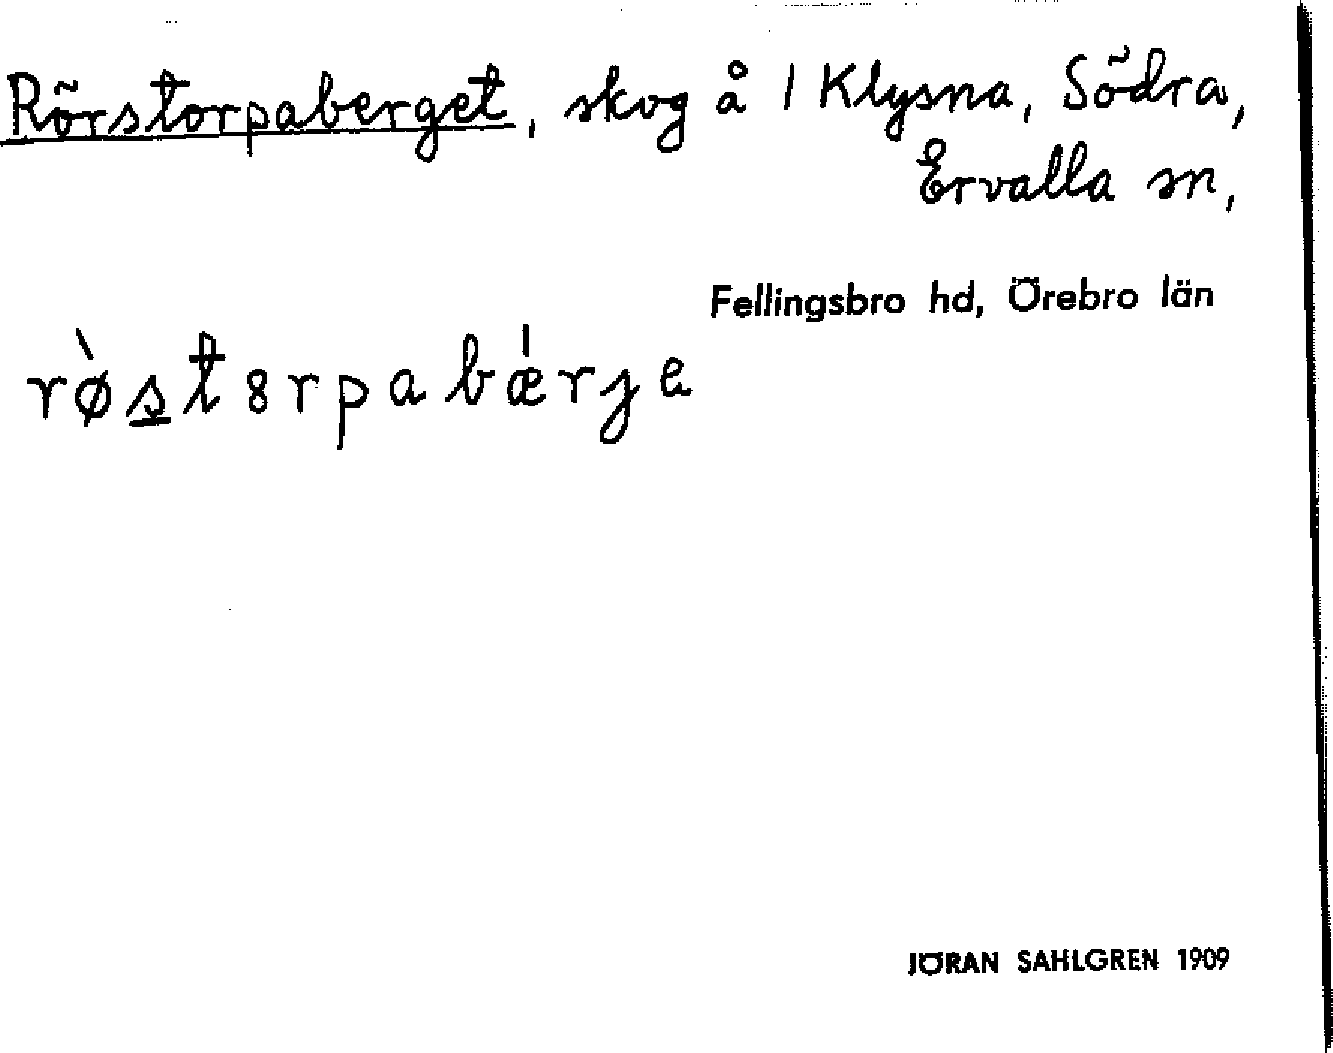 Rörstorpaberget, skog å 1 Klysna, Södra,
Ervalla sn,
Fellingsbro hd, Örebro län
rø̀st8rpabǽrje
JÖRAN SAHLGREN 1909